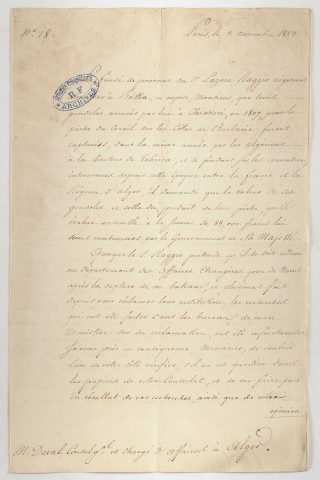 N° 18.
Paris, le 9. novembre 1829
Le fondé de pouvoirs du S. Lazare Raggio négociant
à Bastia, m'expose, Monsieur, que trois
gondoles armées par lui à en 1807, pour la
pêche du Corail sur les Côtes de Barbarie, furent
capturées, dans la même année par les algériens
à la hauteur de Tabarca, et se fondant sur les conventions
intervenues depuis cette époque entre la france et la
Régence d'Alger, il demande que la valeur de ses
gondoles et celle du produit de leur pêche, qu'il
évalue ensemble à la somme de 88,000 francs lui
soient remboursées par le Gouvernement de Sa Majesté.
Quoique le S. Raggio prétende qu'il se soit adressé
au département des Affaires Etrangères peu de tems
après la capture de ses bateaux, et plusieurs fois
depuis pour réclamer leur restitution, les recherches
qui ont été faites dans les bureaux de mon
Ministère sur sa réclamation, ont été infructueuses.
Je vous prie en conséquence, Monsieur, de vouloir
bien de votre côté vérifier s'il en est question dans
les papiers de votre Consulat, et de me faire part
du résultat de vos recherches, ainsi que de votre
opinion
M. Deval Consul gal. et chargé d'affaires à Alger.
ARCHIVES
R F